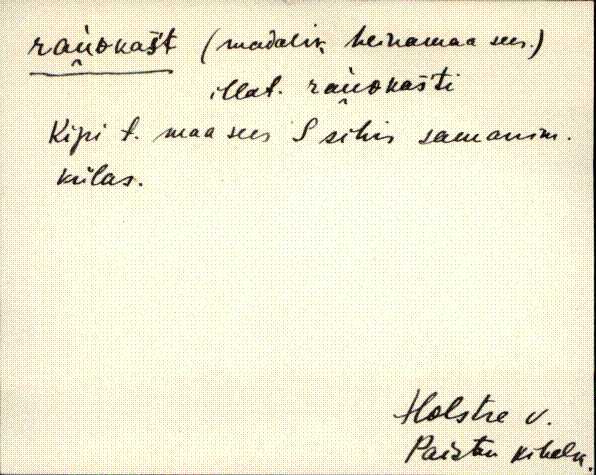 rau̯okašt (madalik heinamaa sees.)
illat. rau̯okašti
Kipi t. maa sees S sihis samanim.
külas.
Holstre v.
Paistu kihelk.